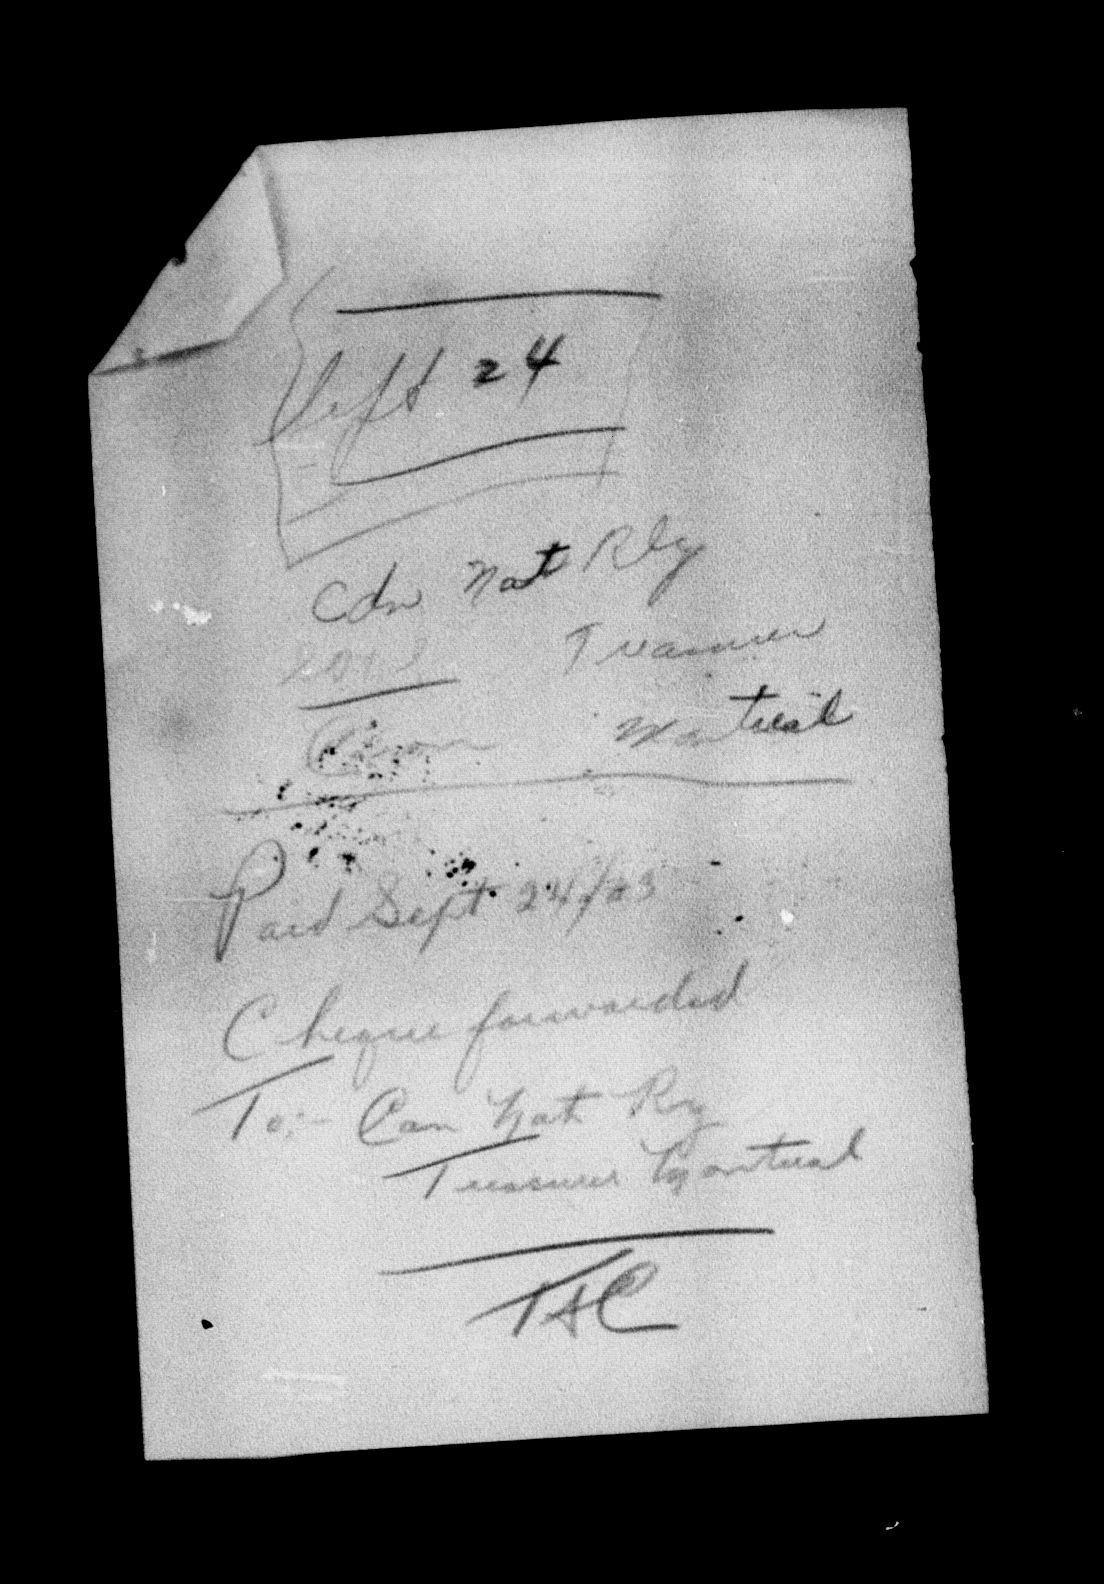 left 24
Cdn Nat Rly
Treasurer
Montreal
Paid Sept 24/23
Cheque forwarded
To:- Can Nat Ry
Treasurer Montreal
TSC